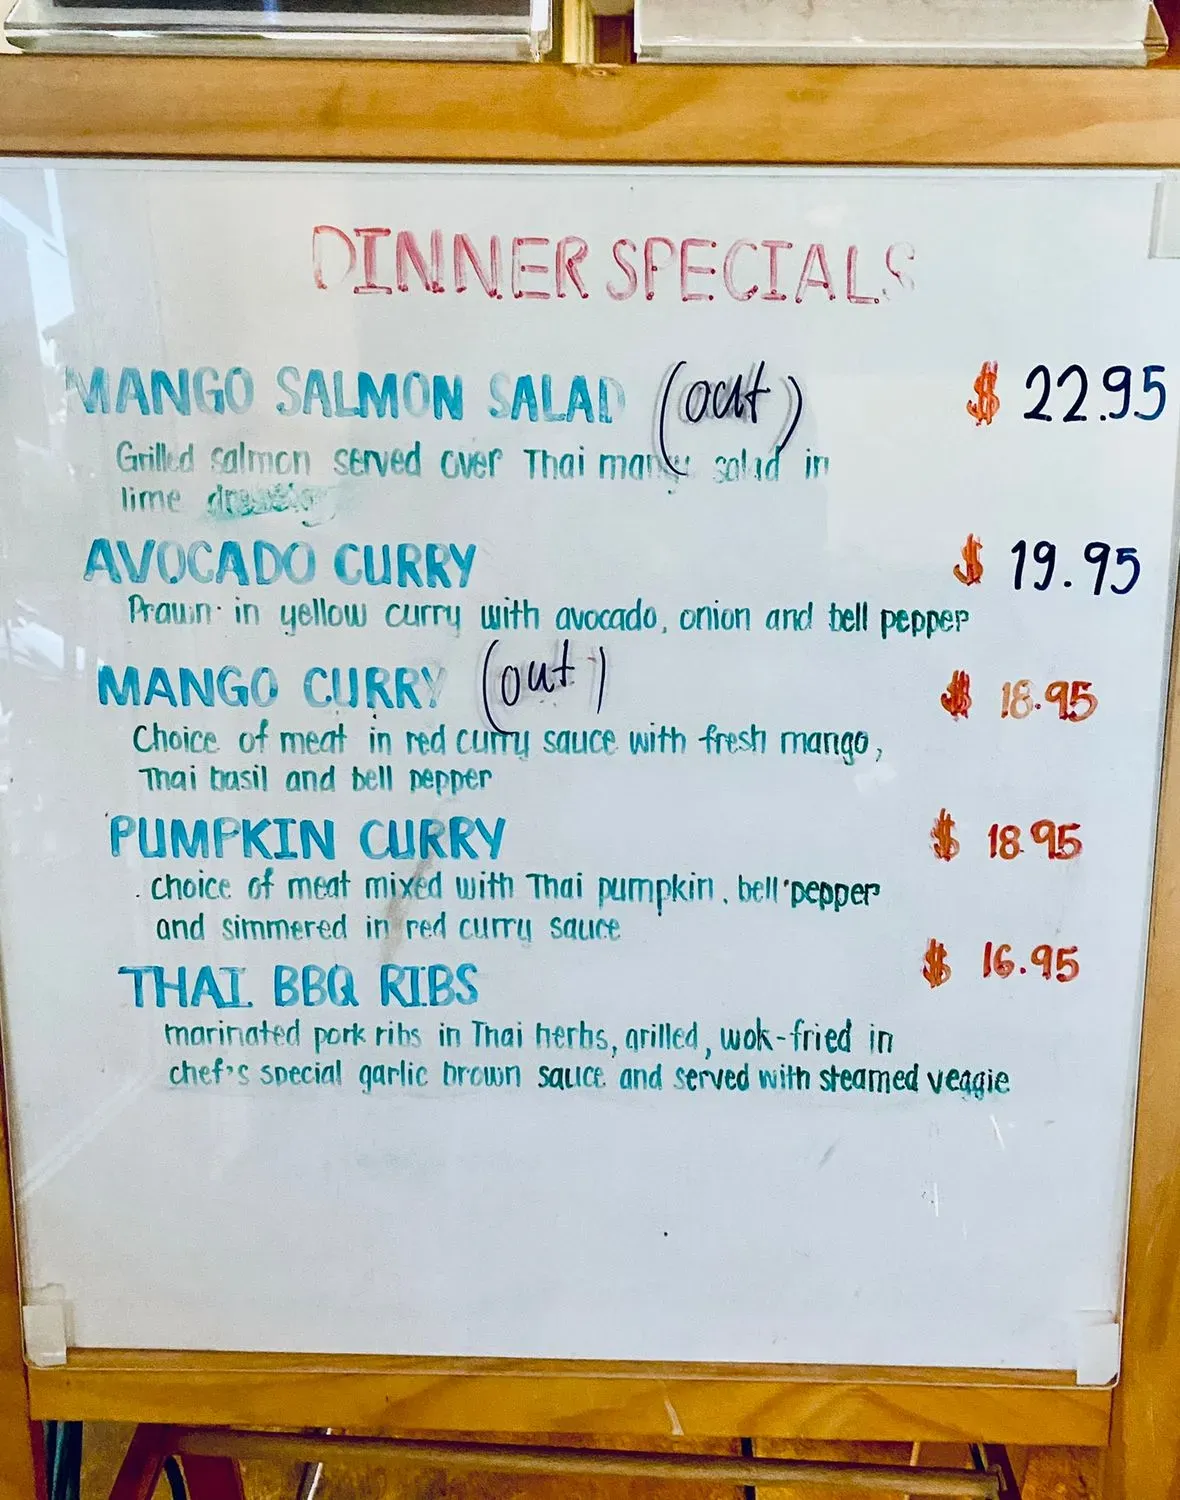 DINNER SPECIALS
MANGO SALMON SALAD (out) $ 22.95
Grilled salmon served over Thai mango salad in
lime dressing
AVOCADO CURRY $ 19.95
Prawn in yellow curry with avocado, onion and bell pepper
MANGO CURRY (out) $ 18.95
Choice of meat in red curry sauce with fresh mango,
Thai basil and bell pepper
PUMPKIN CURRY $ 18.95
choice of meat mixed with Thai pumpkin, bell pepper
and simmered in red curry sauce
THAI BBQ RIBS $ 16.95
marinated pork ribs in Thai herbs, grilled, wok-fried in
chef's special garlic brown sauce and served with steamed veggie